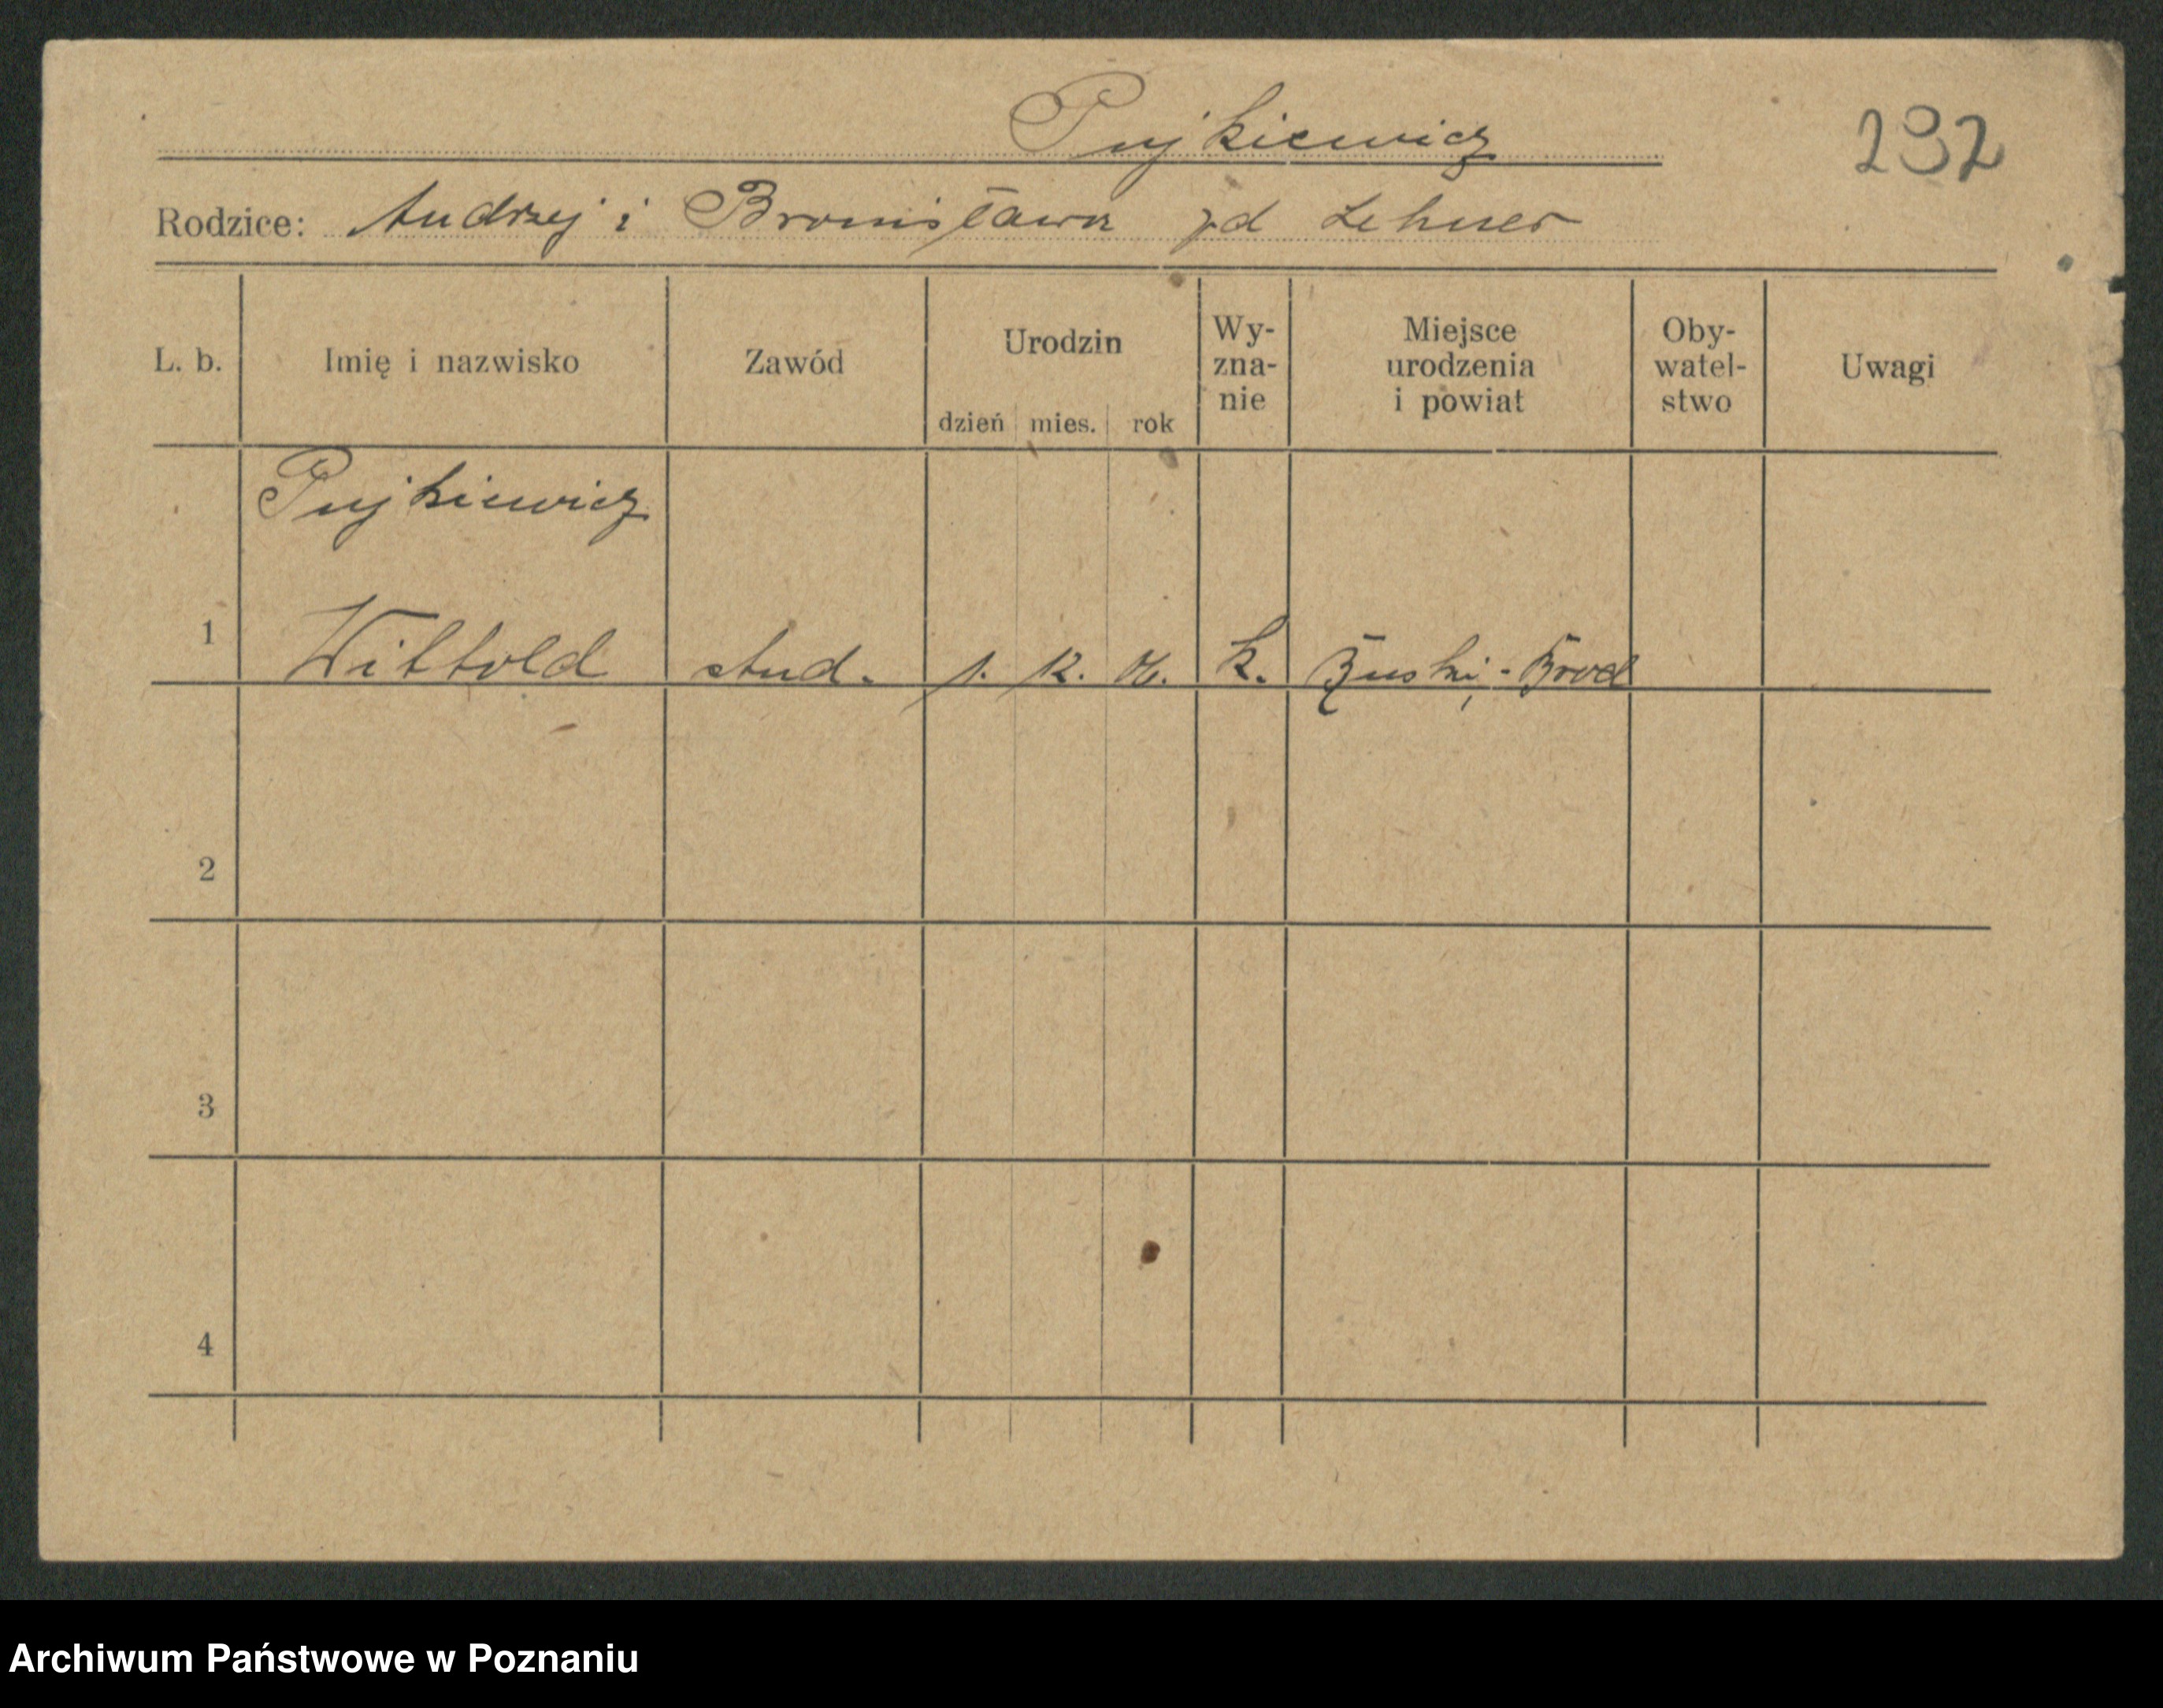 Pujkiewicz
232
Rodzice: Andrzej i Bronisława zd Lehner
L. b. Imię i nazwisko Zawód Urodzin dzień mies. rok Wy-zna-nie Miejsce urodzenia i powiat Oby-watel-stwo Uwagi
Pujkiewicz
1 Wittold stud. 1. 12. K. Brod
2
3
4
Archiwum Państwowe w Poznaniu